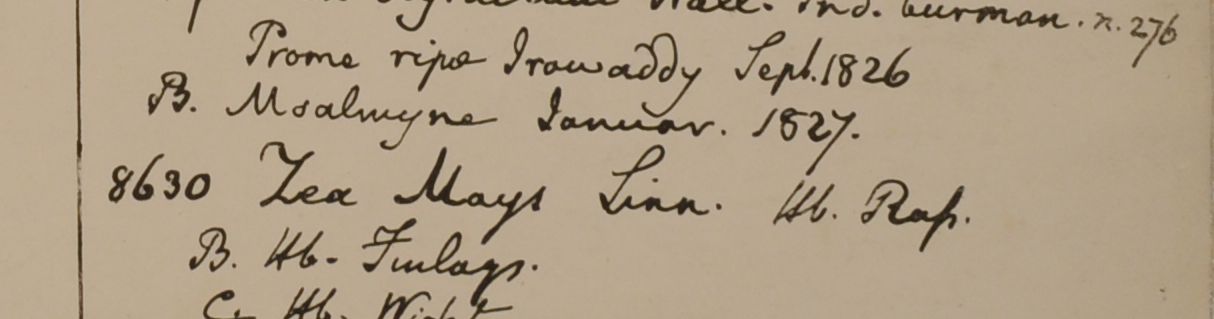 Wall. Ind. burman. n. 276
Prome ripæ Irawaddy Sept. 1826
B. Moalmyne Januar. 1827.
8630 Zea Mays Linn. Hb. Rox.
B. Hb. Finlays.
C. Hb. Wight